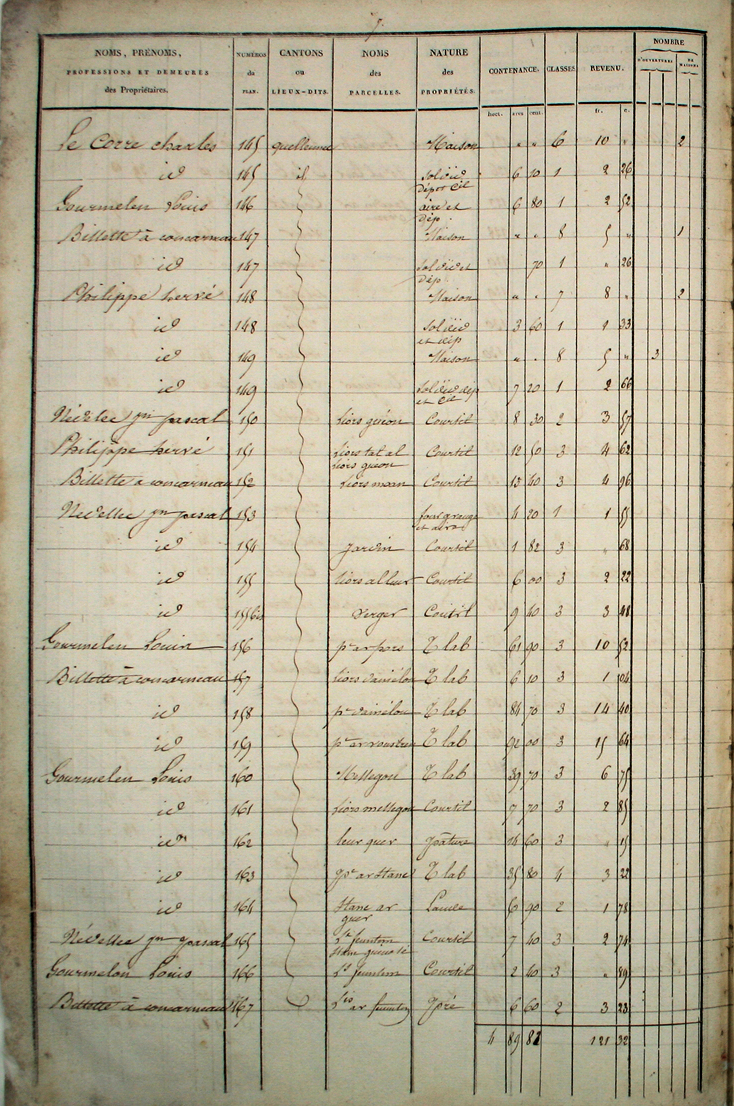 NOMS, PRÉNOMS, PROFESSIONS ET DEMEURES des Propriétaires. NUMÉROS du PLAN. CANTONS ou LIEUX-DITS. NOMS des PARCELLES. NATURE des PROPRIÉTÉS. CONTENANCE. CLASSES. REVENU. NOMBRE D'OUVERTURES DE MAISONS
hect. ares cent. fr. c.
Le Corre charles 145 quellenec Maison " " 6 10 " 2
id 145 id Sol id dép et Cil 6 10 1 2 26
Gourmelen Louis 146 aire et dép. 6 80 1 2 52
Billette à concarneau 147 Maison " " 8 5 " 1
id 147 Sol id et dép. 70 1 " 26
Philippe hervé 148 Maison " " 7 8 " 2
id 148 Sol id et dép 3 60 1 1 33
id 149 Maison " " 8 5 " 3
id 149 Sol id dép et Cil 7 20 1 2 66
Névellec jn pascal 150 liors guéon Courtil 8 30 2 3 57
Philippe hervé 151 liors tal al liors gueon Courtil 12 50 3 4 62
Billette à concarneau 152 liors mean Courtil 13 40 3 4 96
Névellec jn pascal 153 four grange et aire 4 20 1 1 55
id 154 jardin Courtil 1 82 3 " 68
id 155 liors al leur Courtil 6 00 3 2 22
id 155bis verger Coutil 9 40 3 3 48
Gourmelen Louis 156 pc ar pors T lab 61 90 3 10 52
Billette à concarneau 157 liors daniélou T lab 6 10 3 1 04
id 158 pc daniélou T lab 84 70 3 14 40
id 159 T lab 92 00 3 15 64
Gourmelen Louis 160 Mellegou T lab 39 70 3 6 75
id 161 liors mellegou Courtil 7 70 3 2 85
idm 162 leur quer pâture 14 60 3 " 15
id 163 pc ar Stanc T lab 35 80 4 3 22
id 164 Stanc ar quer 5 90 2 1 78
Névellec jn pascal 165 Courtil 7 40 3 2 74
Gourmelen Louis 166 Ls feuntun Courtil 2 40 3 " 89
Billette à concarneau 167 Lios ar feuntun pré 6 60 2 3 23
4 89 82 121 32